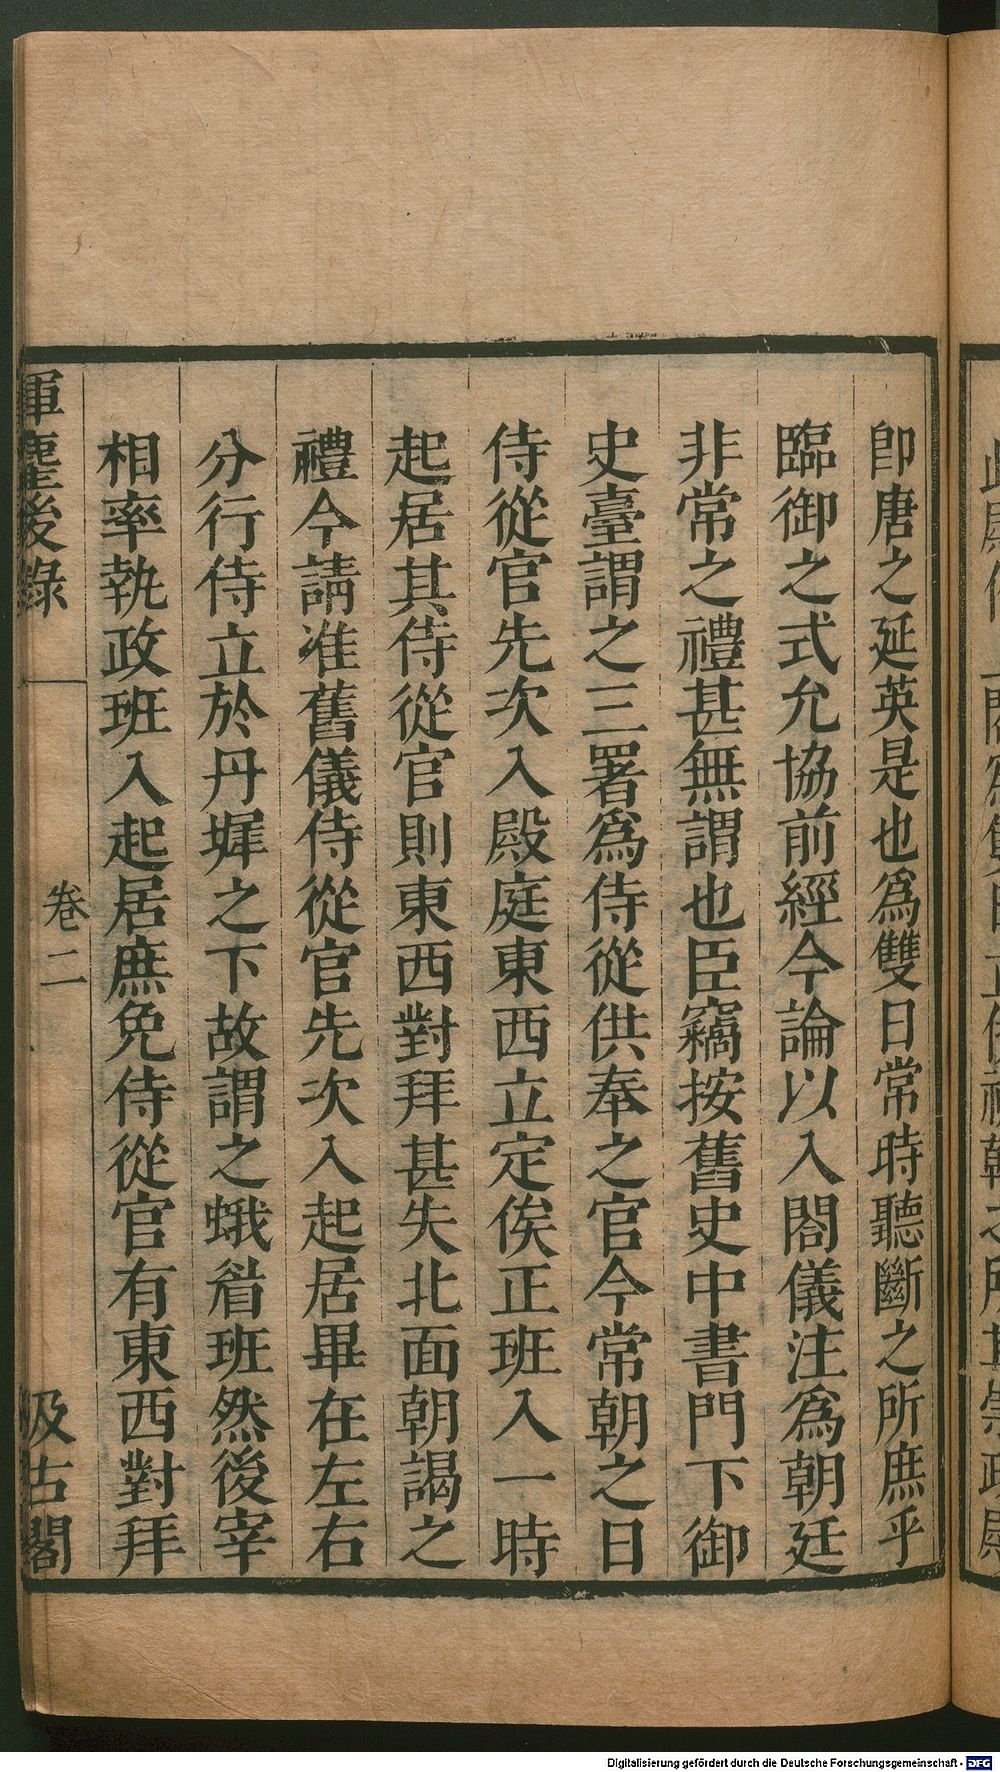 卽唐之延英是也爲雙日常時聽斷之所庶乎
臨御之式允協前經今論以入閤儀注爲朝廷
非常之禮甚無謂也臣竊按舊史中書門下御
史臺謂之三署爲侍從供奉之官今常朝之日
侍從官先次入殿庭東西立定俟正班入一時
起居其侍從官則東西對拜甚失北面朝謁之
禮今請准舊儀侍從官先次入起居畢在左右
分行侍立於丹墀之下故謂之蛾眉班然後宰
相率執政班入起居庶免侍從官有東西對拜
揮麈後錄
卷二
汲古閣
Digitalisierung gefördert durch die Deutsche Forschungsgemeinschaft - DFG